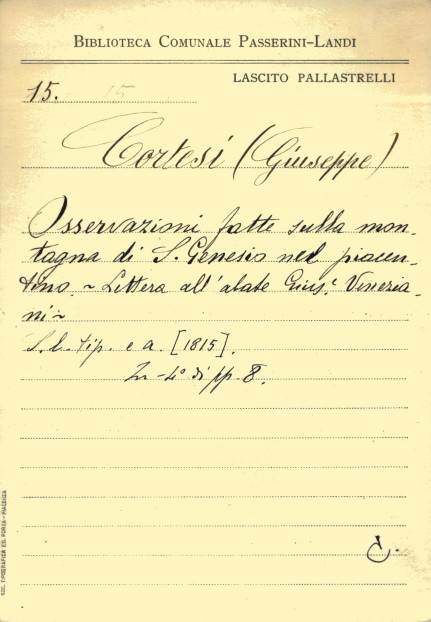 BIBLIOTECA COMUNALE PASSERINI-LANDI
LASCITO PALLASTRELLI
15. 15
Cortesi (Giuseppe)
Osservazioni fatte sulla mon-
tagna di S. Genesio nel piacen-
tino ~ Lettera all'abate Gius.e Venezia-
ni ~
S. l. tip. e a. [1815].
In-4° di pp. 8.
C.
SOC. TIPOGRAFICA ED. PORTA - PIACENZA